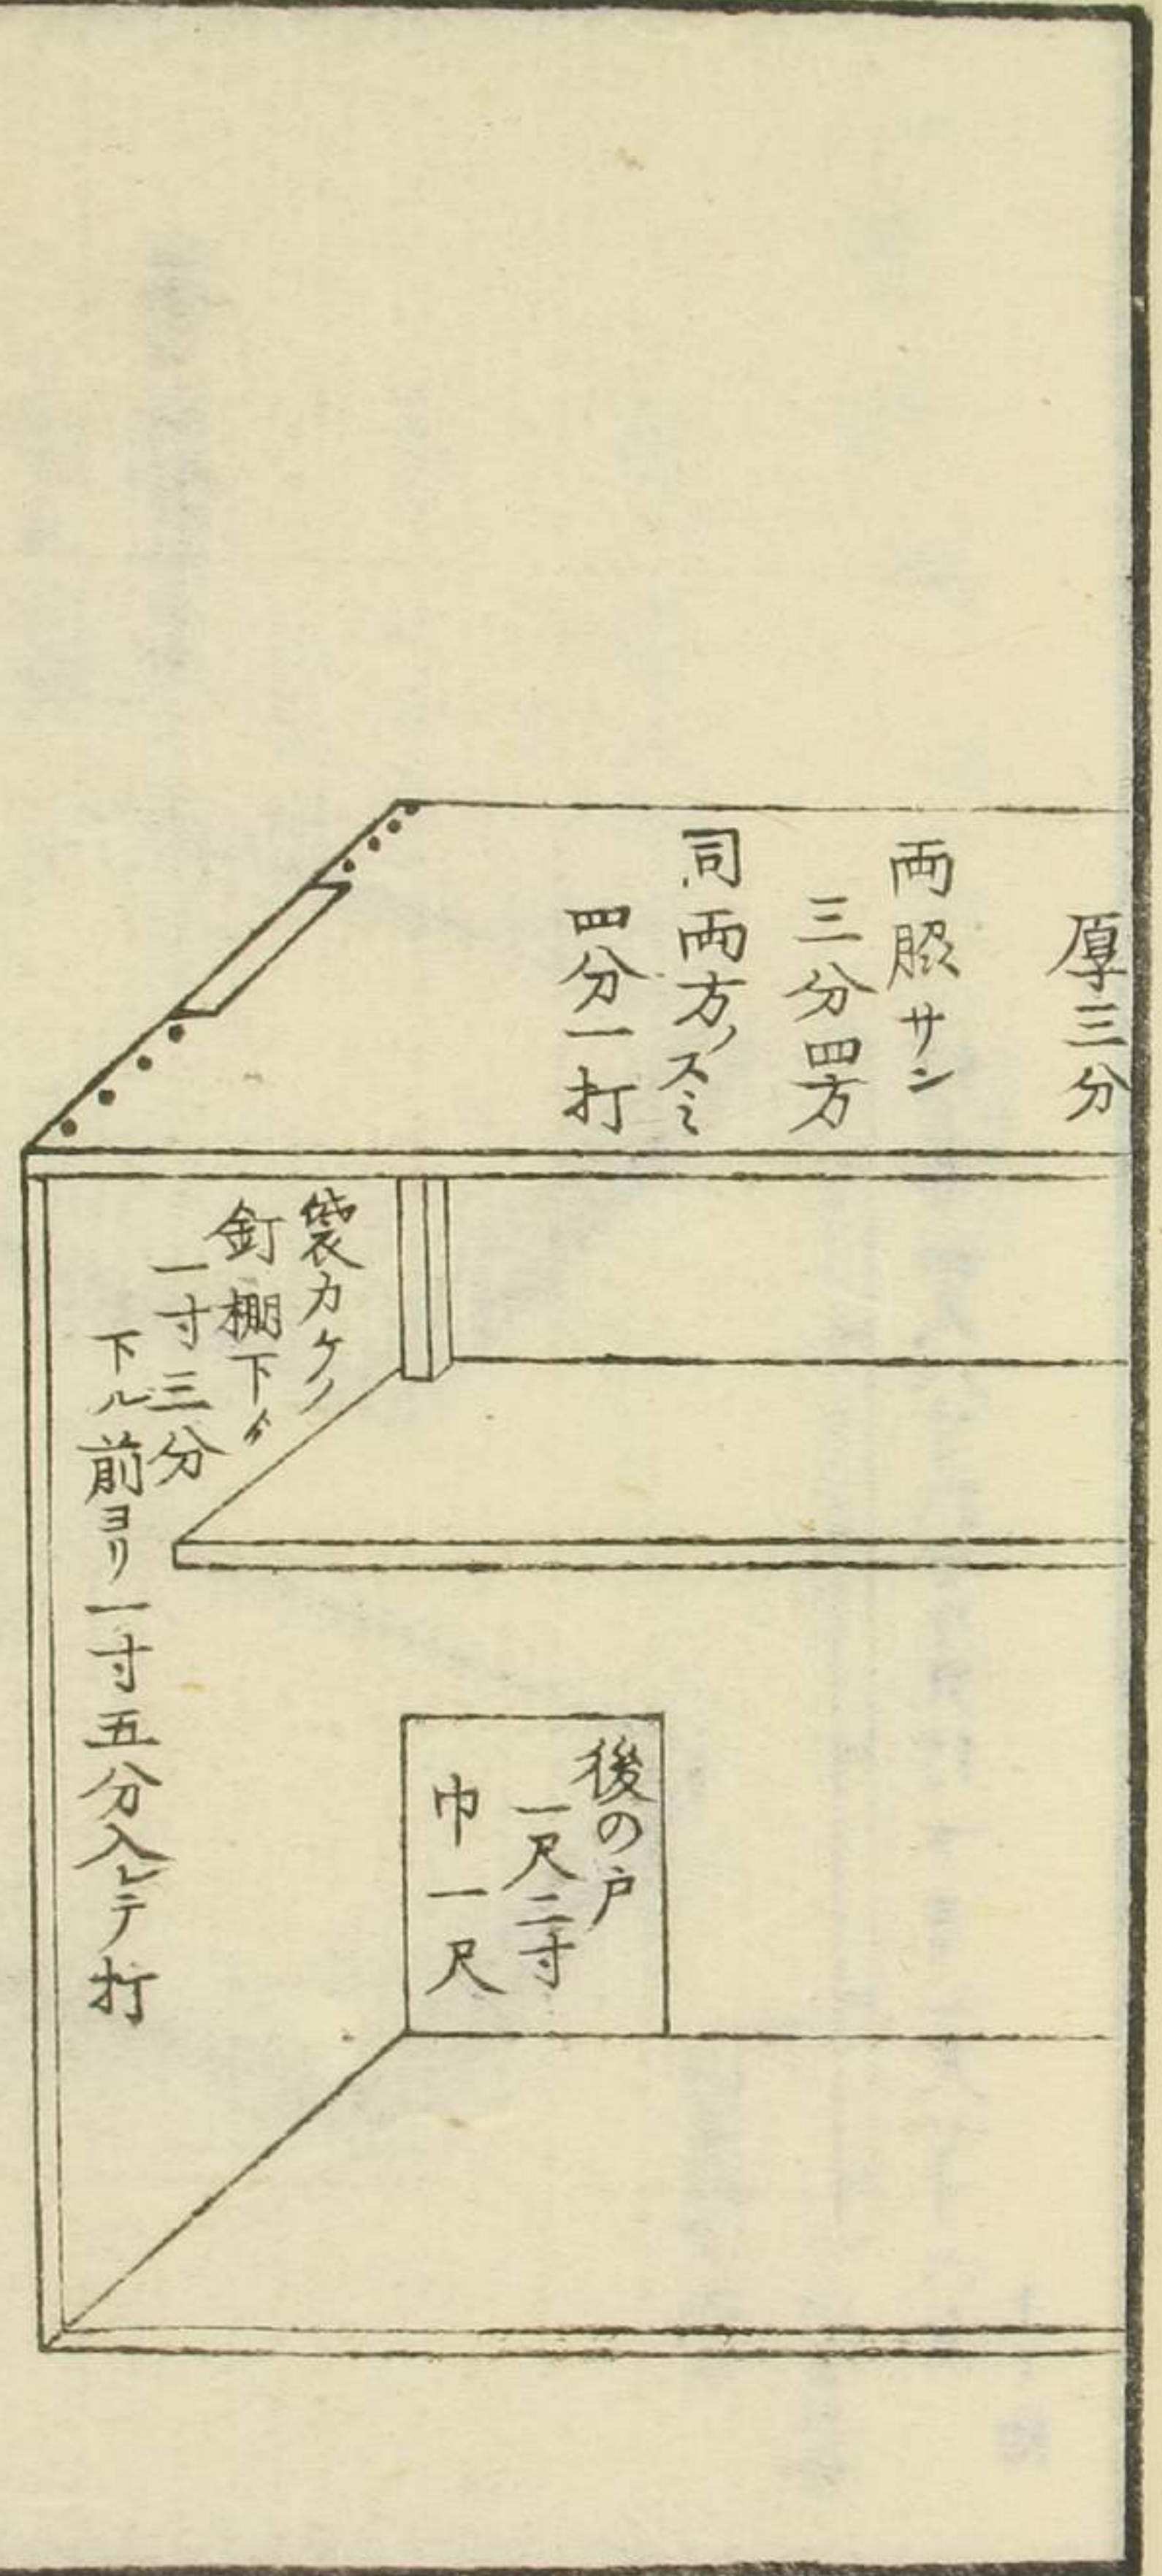 厚三分
両脇サン
三分四方
同両方ノスミ
四分一打
袋カケノ
釘棚下ゟ
一寸三分
下ル前ヨリ一寸五分入レテ打
後の戸
一尺二寸
巾一尺